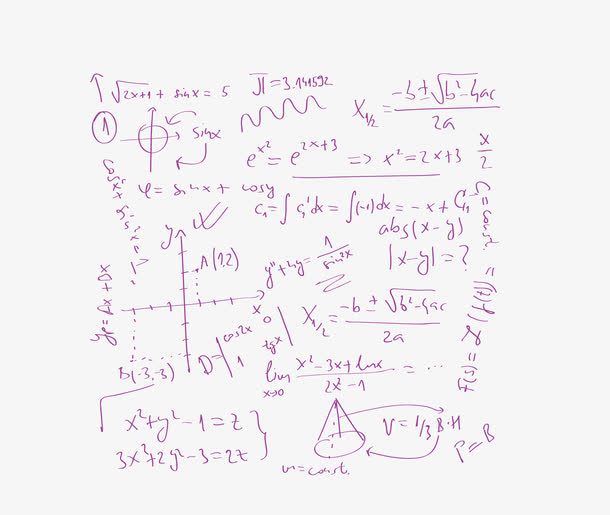 √2x+1 + sinx = 5
π = 3.141592
X1/2 = (-b ± √b²-4ac) / 2a
1
sinx
e^x² = e^2x+3 => x² = 2x+3
x/2
cosx² + sin²x = 1
φ = sinx + cosy
C1 = ∫C1'dx = ∫(-1)dx = -x + C11
C11 = const.
abs(x-y)
y
A(1,2)
y'' + 4y = 1/sin2x
|x-y| = ?
x
y = Ax + Bx
X1/2 = (-b ± √b²-4ac) / 2a
F(s) = L(f(t)) =
D = | cos2x 0
1 tgx |
B(-3,-3)
lim x→0 (x² - 3x + lnx) / (2x² - 1) = ...
x² + y² - 1 = z
3x² + 2y² - 3 = 2z }
V = 1/3 B·H
P = B
m = const.